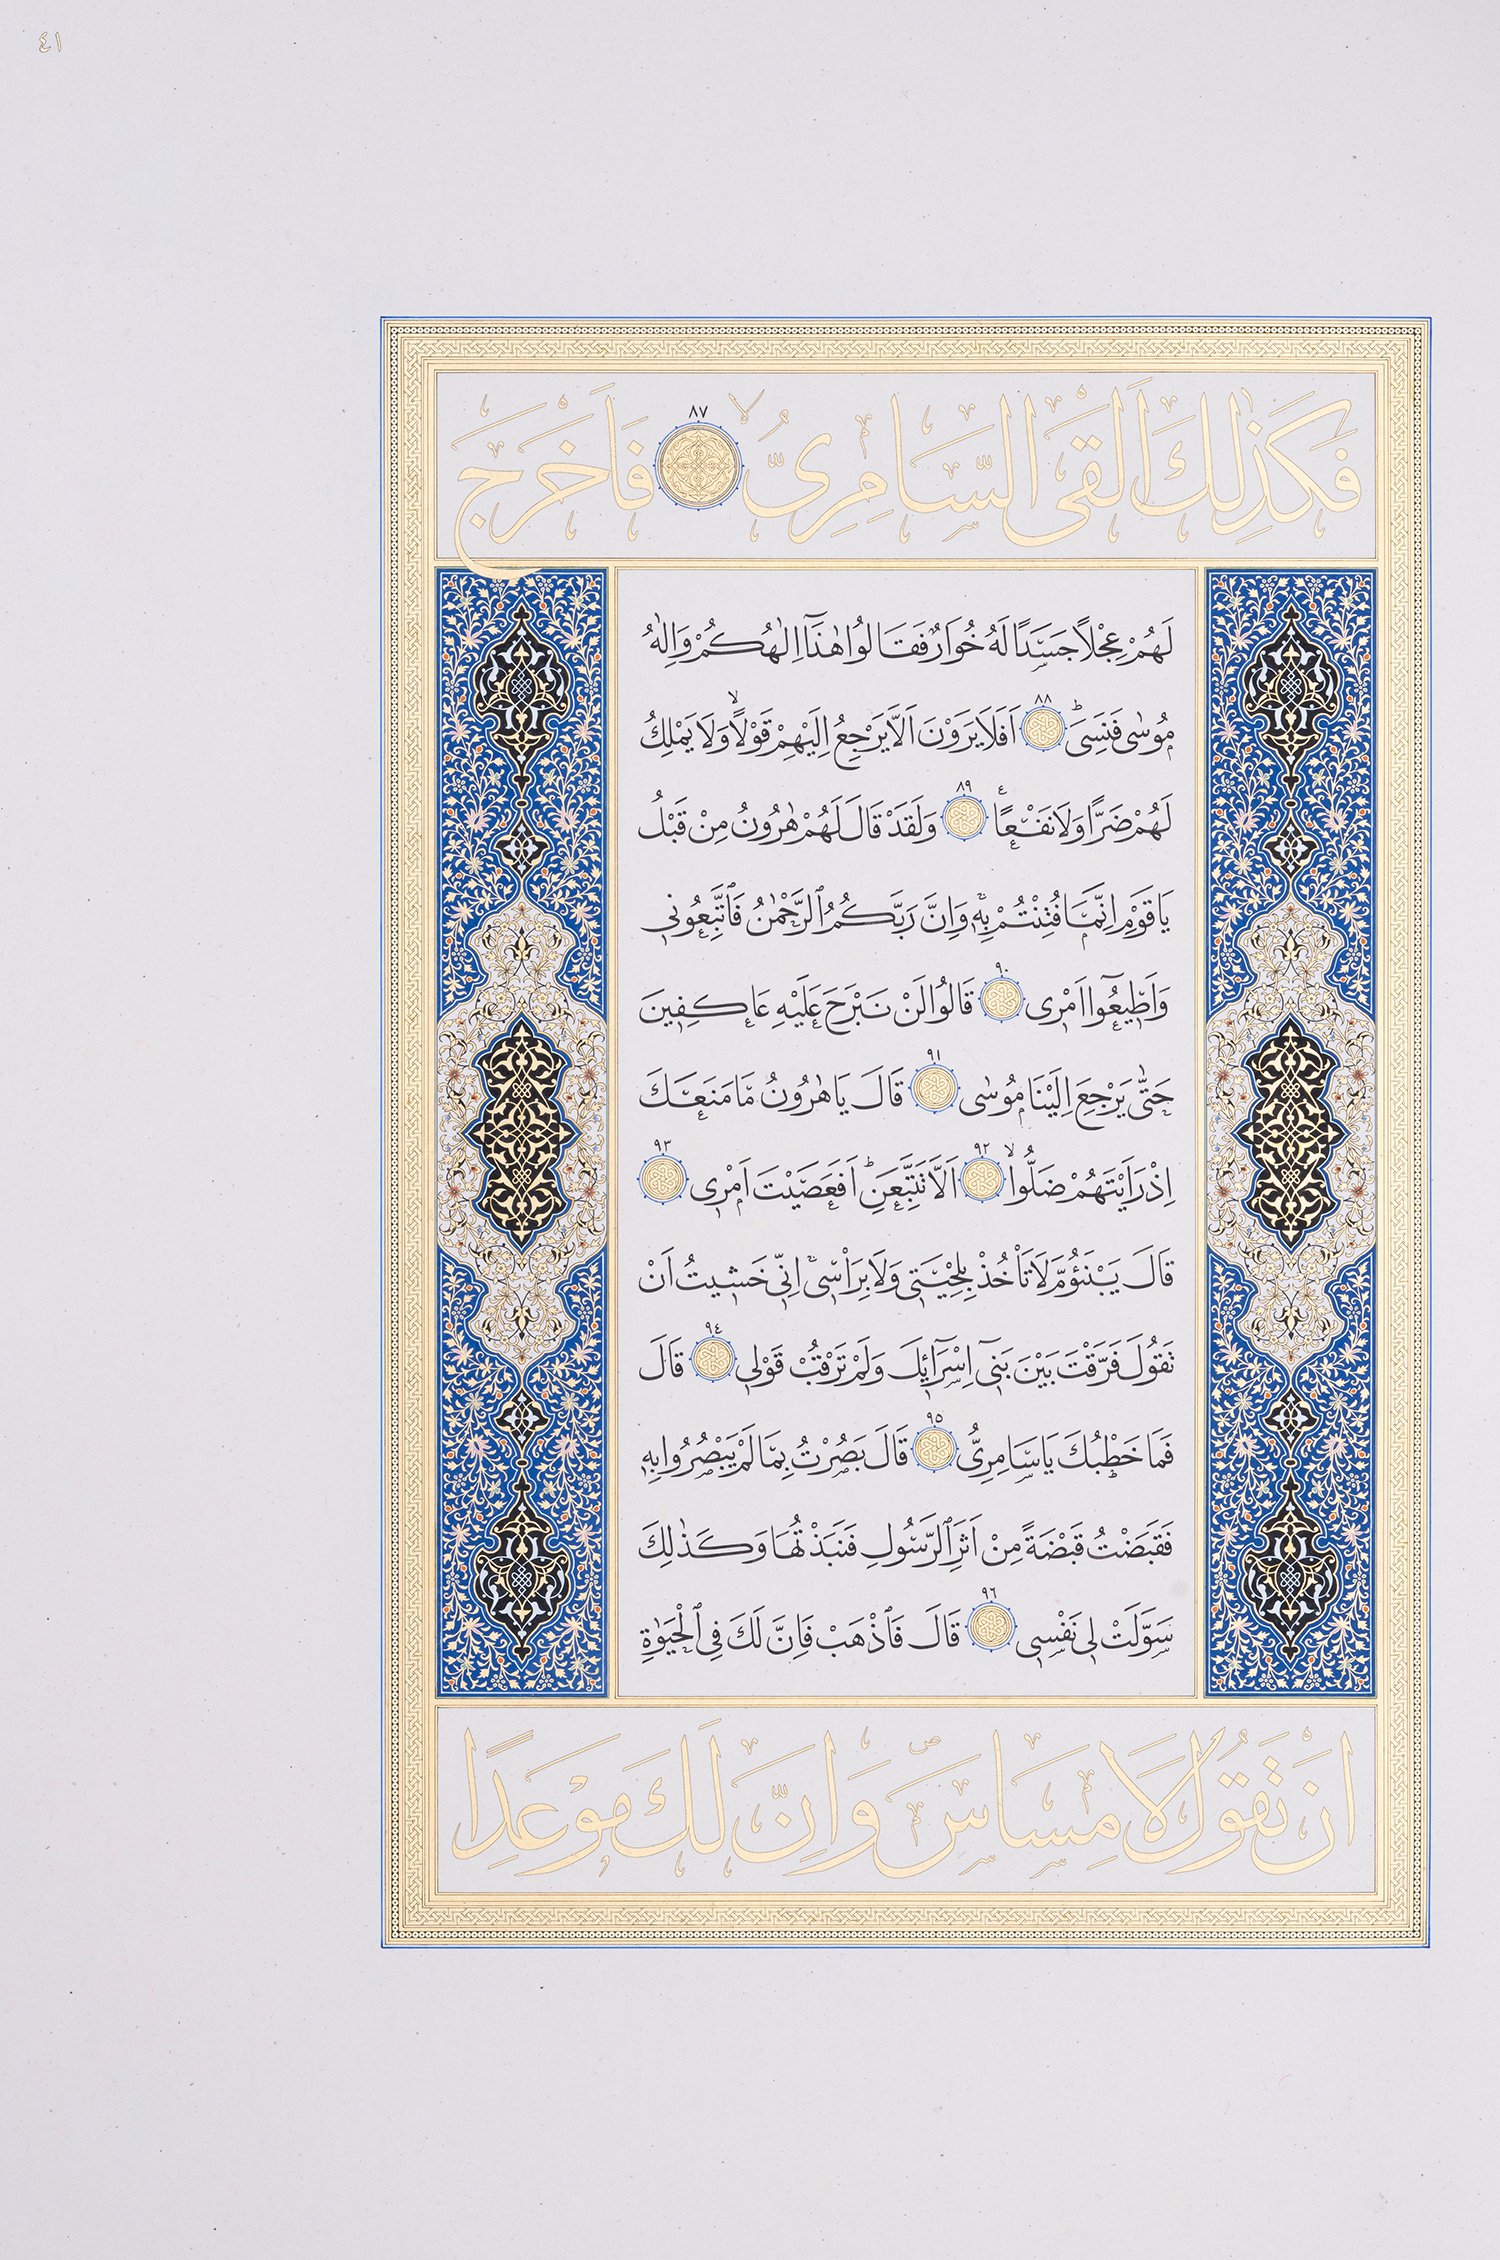 ٤١
فَكَذٰلِكَ اَلْقَى السَّامِرِىُّۙ ٨٧ فَاَخْرَجَ
لَهُمْ عِجْلًا جَسَدًا لَهُ خُوَارٌ فَقَالُوا هٰذَٓا اِلٰهُكُمْ وَاِلٰهُ
مُوسٰى فَنَسِىَۜ ٨٨ اَفَلَا يَرَوْنَ اَلَّا يَرْجِعُ اِلَيْهِمْ قَوْلًاۙ وَلَا يَمْلِكُ
لَهُمْ ضَرًّا وَلَا نَفْعًا ٨٩ وَلَقَدْ قَالَ لَهُمْ هٰرُونُ مِنْ قَبْلُ
يَا قَوْمِ اِنَّمَا فُتِنْتُمْ بِهٖۚ وَاِنَّ رَبَّكُمُ الرَّحْمٰنُ فَاتَّبِعُونٖى
وَاَطٖيعُٓوا اَمْرٖى ٩٠ قَالُوا لَنْ نَبْرَحَ عَلَيْهِ عَاكِفٖينَ
حَتّٰى يَرْجِعَ اِلَيْنَا مُوسٰى ٩١ قَالَ يَا هٰرُونُ مَا مَنَعَكَ
اِذْ رَاَيْتَهُمْ ضَلُّواۙ ٩٢ اَلَّا تَتَّبِعَنِۜ اَفَعَصَيْتَ اَمْرٖى ٩٣
قَالَ يَبْنَؤُمَّ لَا تَاْخُذْ بِلِحْيَتٖى وَلَا بِرَاْسٖىۚ اِنّٖى خَشٖيتُ اَنْ
تَقُولَ فَرَّقْتَ بَيْنَ بَنٖٓى اِسْرَٓائٖلَ وَلَمْ تَرْقُبْ قَوْلٖى ٩٤ قَالَ
فَمَا خَطْبُكَ يَا سَامِرِىُّ ٩٥ قَالَ بَصُرْتُ بِمَا لَمْ يَبْصُرُوا بِهٖ
فَقَبَضْتُ قَبْضَةً مِنْ اَثَرِ الرَّسُولِ فَنَبَذْتُهَا وَكَذٰلِكَ
سَوَّلَتْ لٖى نَفْسٖى ٩٦ قَالَ فَاذْهَبْ فَاِنَّ لَكَ فِى الْحَيٰوةِ
اَنْ تَقُولَ لَا مِسَاسَࣕ وَاِنَّ لَكَ مَوْعِدًا